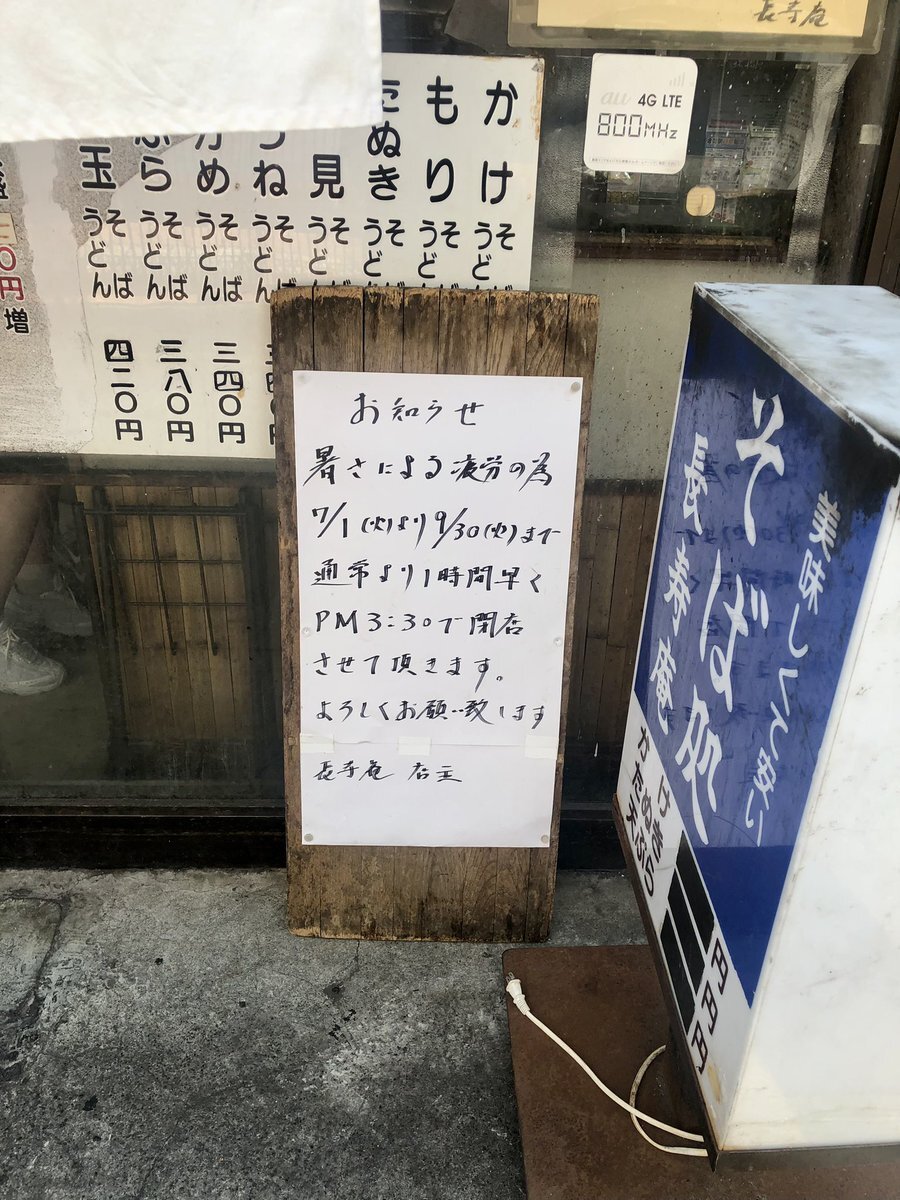 長寿庵
au 4G LTE
800MHz
かけ そば うどん
もり そば うどん
たぬき そば うどん
見 そば うどん
ね そば うどん
め そば うどん 三四〇円
ぷら そば うどん 三八〇円
玉 そば うどん 四二〇円
〇円増
お知らせ
暑さによる疲労の為
7/1(火)より9/30(火)まで
通常より1時間早く
PM3:30で閉店
させて頂きます。
よろしくお願い致します
長寿庵 店主
美味しくて安い
そば処
長寿庵
円
円
円